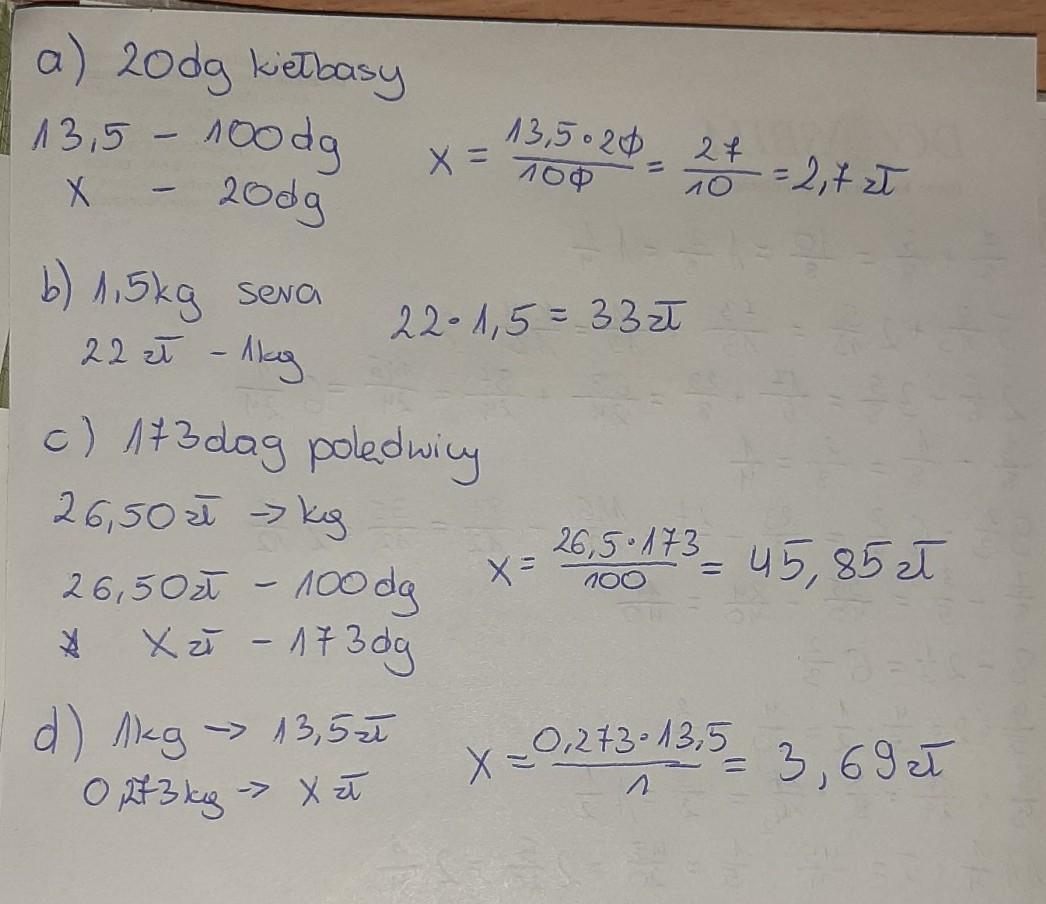 a) 20dg kiełbasy
13,5 - 100dg
x - 20dg
x = 13,5·20/100 = 27/10 = 2,7 zł
b) 1,5kg sera
22 zł - 1kg
22·1,5 = 33 zł
c) 173dag polędwicy
26,50 zł → kg
26,50 zł - 100dg
x zł - 173dg
x = 26,5·173/100 = 45,85 zł
d) 1kg → 13,5 zł
0,273kg → x zł
x = 0,273·13,5/1 = 3,69 zł